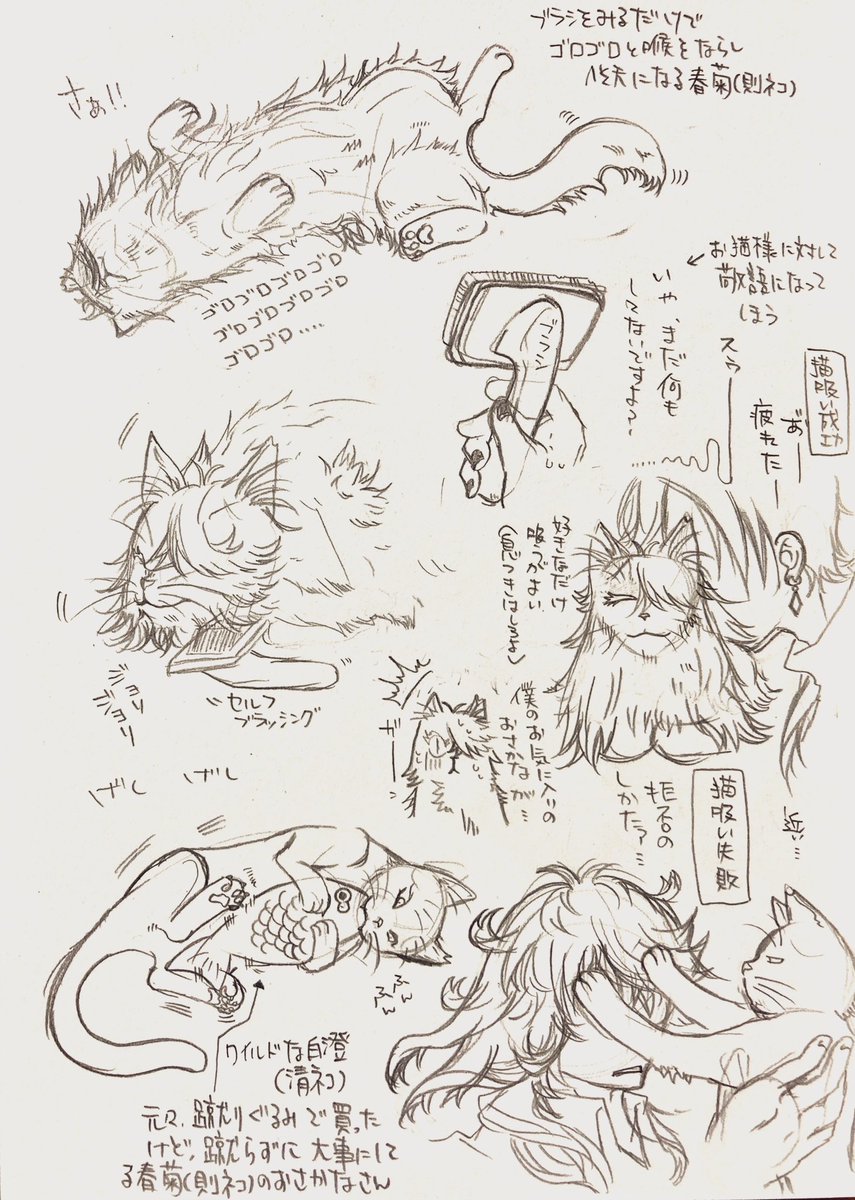 ブラシをみるだけで
ゴロゴロと喉をならし
へそ天になる春菊(則ネコ)
さぁ!!
ゴロゴロゴロゴロ
ゴロゴロゴロゴロ
ゴロゴロ....
お猫様に対して
敬語になって
しまう
いや、まだ何も
してないですよ?
ブラシ
猫吸い成功
あ゛ー
疲れたー
スゥー
好きなだけ
吸うがよい
(息つきはしろよ)
ジョリ
ジョリ
セルフ
ブラッシング
僕のお気に入りの
おさかなが…
ガーン
げしげし
ふんふん
ワイルドな白澄
(清ネコ)
元々、蹴りぐるみで買った
けど、蹴らずに大事にして
る春菊(則ネコ)のおさかなさん
猫吸い失敗
拒否の
しかたァ…
近い…